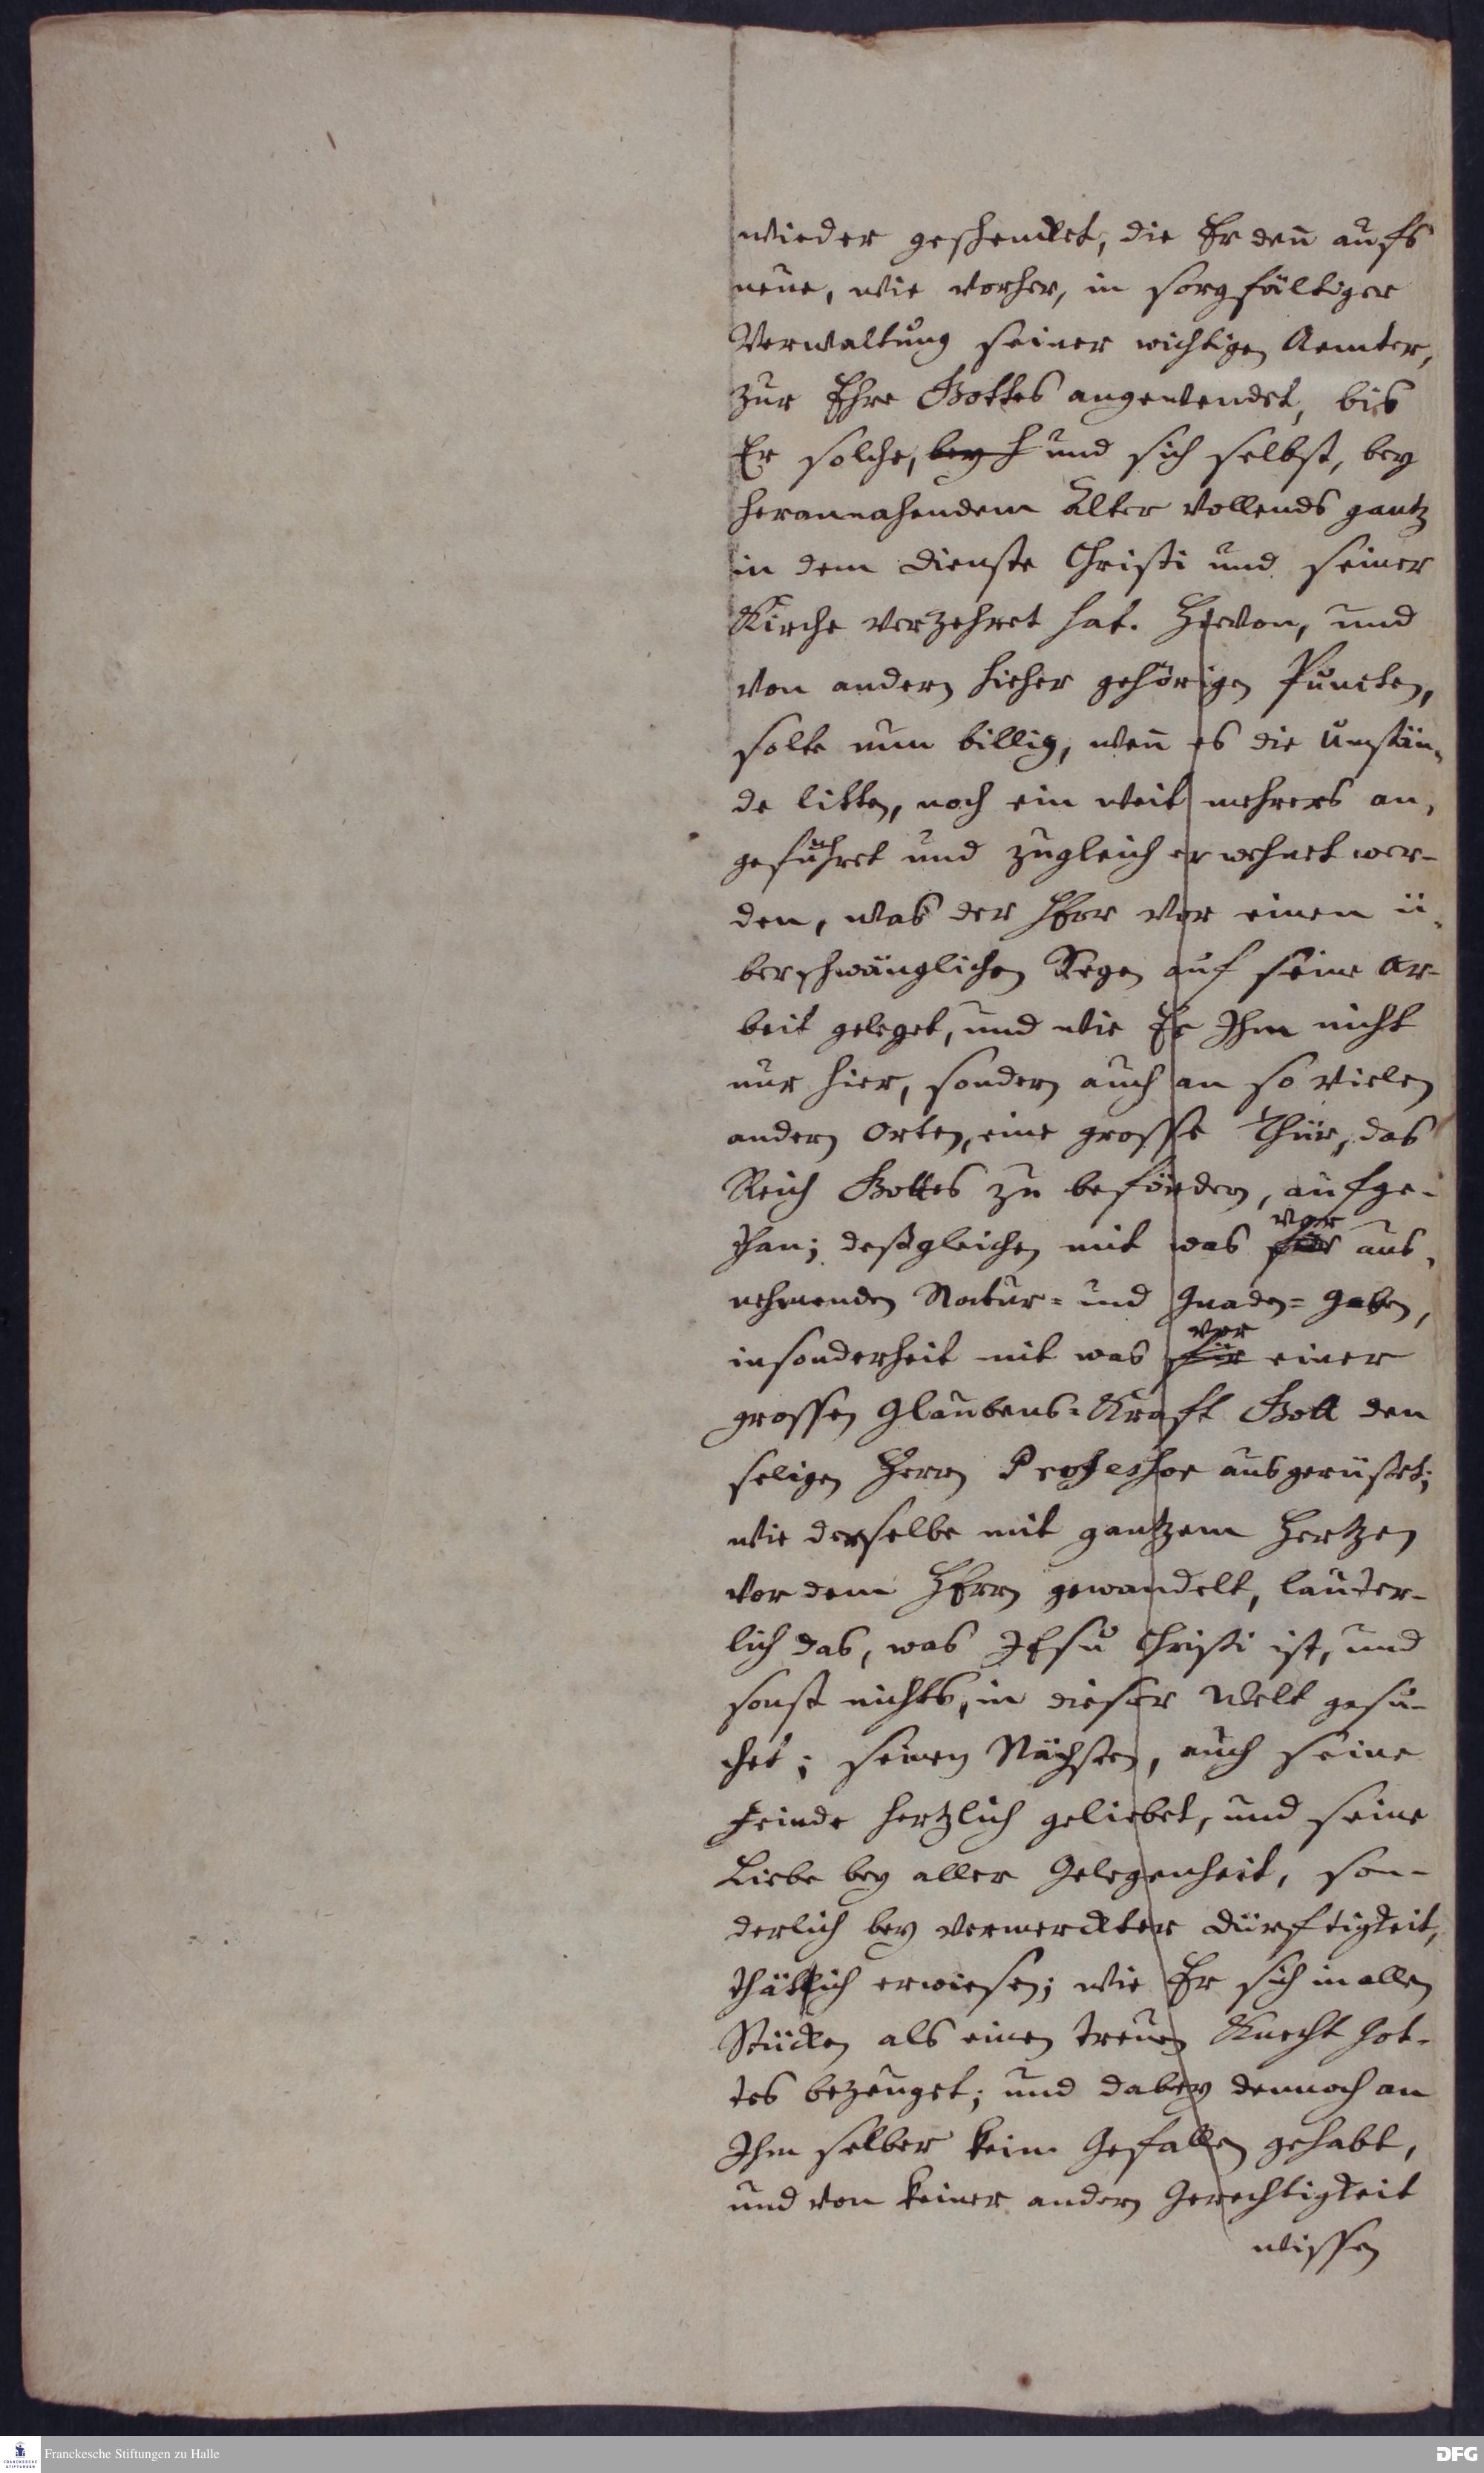 wieder geschencket, die Er deñ aufs
neue, wie vorher, in sorgfältiger
Verwaltung seiner wichtigen Aemter,
zur Ehre Gottes angewendet, bis
Er solche, bey h und sich selbst, bey
herannahendem Alter vollends gantz
in dem Dienste Christi und seiner
Kirche verzehret hat. Hievon, und
von andern hieher gehörigen Puncten,
solte nun billig, weñ es die Umstän-
de litten, noch ein weit mehrers an-
geführet und zugleich erwehnet wer-
den, was der HErr vor einen ü-
berschwänglichen Segen auf seine Ar-
beit geleget, und wie Er Ihm nicht
nur hier, sondern auch an so vielen
andern Orten, eine grosse Thür, das
Reich Gottes zu befördern, aufge-
than; deßgleichen mit was für vor aus-
nehmenden Natur- und Gnaden-Gaben,
insonderheit mit was für vor einer
grossen Glaubens-Krafft Gott den
seligen Herrn Professor ausgerüstet;
wie derselbe mit gantzem Hertzen
vor dem HErrn gewandelt, lauter-
lich das, was JEsu Christi ist, und
sonst nichts, in dieser Welt gesu-
chet; seinen Nächsten, auch seine
Feinde hertzlich geliebet, und seine
Liebe bey aller Gelegenheit, son-
derlich bey vermerckter Dürftigkeit,
thätlich erwiesen; wie Er sich in allen
Stücken als einen treuen Knecht Got-
tes bezeuget; und dabey dennoch an
Ihm selber kein Gefallen gehabt,
und von keiner andern Gerechtigkeit
wissen
Franckesche Stiftungen zu Halle
DFG